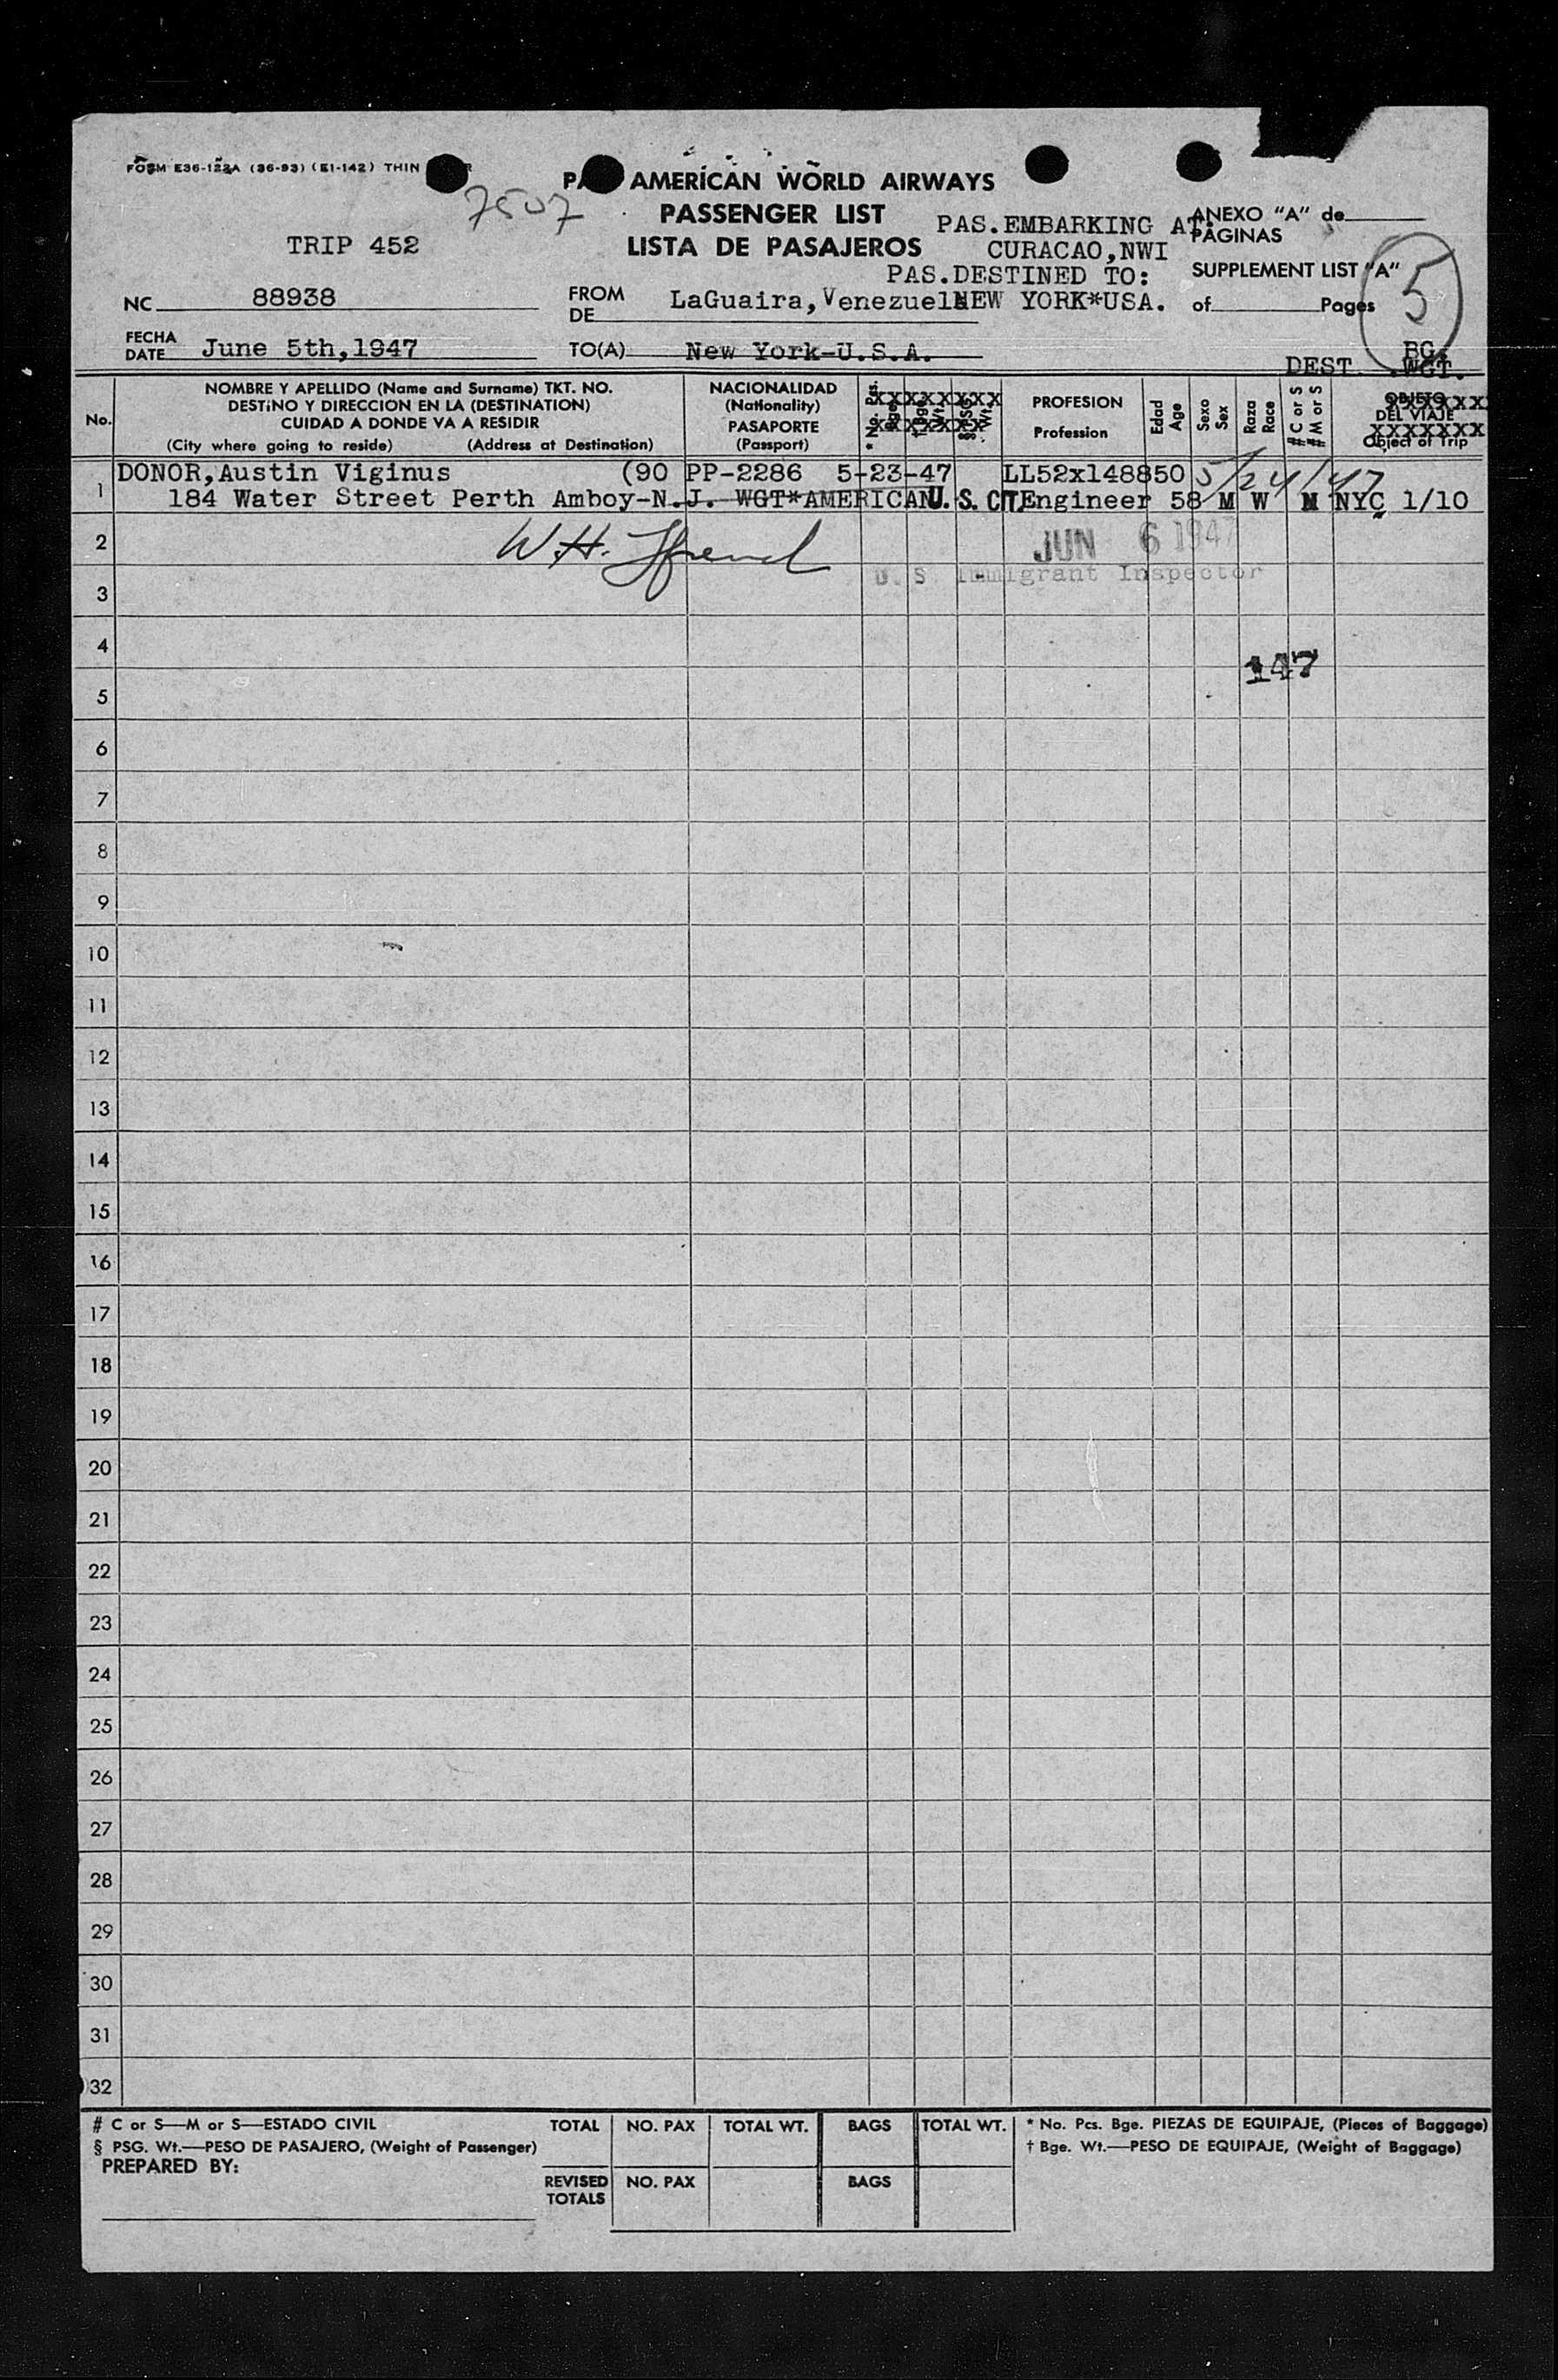 FORM E36-122A (36-93) (E1-142) THIN
7507
PAN AMERICAN WORLD AIRWAYS
PASSENGER LIST
LISTA DE PASAJEROS
TRIP 452
PAS.EMBARKING AT:
CURACAO,NWI
PAS.DESTINED TO:
NEW YORK*USA.
ANEXO "A" de
PAGINAS
SUPPLEMENT LIST "A"
of Pages
5
NC 88938
FROM
DE LaGuaira, Venezuela
FECHA
DATE June 5th,1947
TO(A) New York-U.S.A.
DEST. BG. WGT.
No.
NOMBRE Y APELLIDO (Name and Surname) TKT. NO.
DESTINO Y DIRECCION EN LA (DESTINATION)
CUIDAD A DONDE VA A RESIDIR
(City where going to reside) (Address at Destination)
NACIONALIDAD
(Nationality)
PASAPORTE
(Passport)
* No. Pcs. Bge.
† Bge. Wt.
§ PSG. Wt.
PROFESION
Profession
Edad
Age
Sexo
Sex
Raza
Race
# C or S
# M or S
OBJETO
DEL VIAJE
Object of Trip
1 DONOR,Austin Viginus (90 PP-2286 5-23-47 LL52x148850 5/24/47
184 Water Street Perth Amboy-N.J. WGT*AMERICAN U. S. CIT. Engineer 58 M W M NYC 1/10
2 W.H. JUN 6 1947
3 U. S. Immigrant Inspector
4
147
5
6
7
8
9
10
11
12
13
14
15
16
17
18
19
20
21
22
23
24
25
26
27
28
29
30
31
32
# C or S—M or S—ESTADO CIVIL
§ PSG. Wt.—PESO DE PASAJERO, (Weight of Passenger)
PREPARED BY:
TOTAL NO. PAX TOTAL WT. BAGS TOTAL WT.
REVISED
TOTALS NO. PAX BAGS
* No. Pcs. Bge. PIEZAS DE EQUIPAJE, (Pieces of Baggage)
† Bge. Wt.—PESO DE EQUIPAJE, (Weight of Baggage)